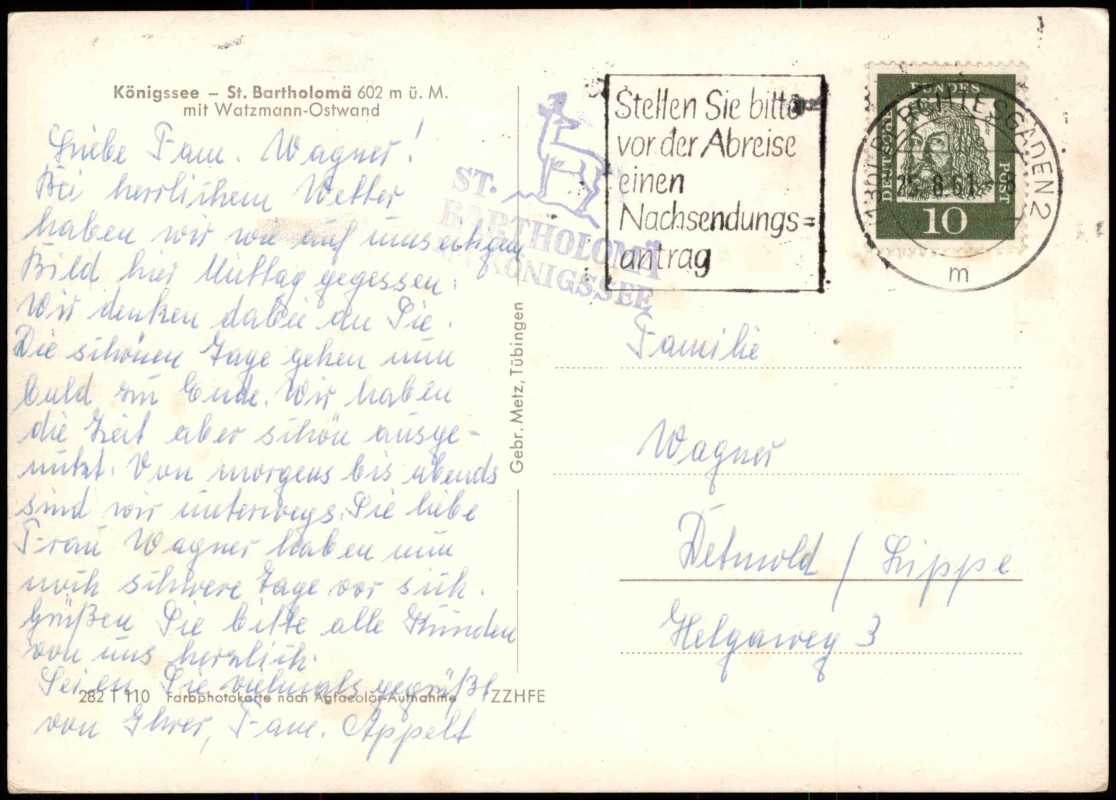 Königssee – St. Bartholomä 602 m ü. M.
mit Watzmann-Ostwand
Liebe Fam. Wagner!
Bei herrlichem Wetter
haben wir wie auf umseitigem
Bild hier Mittag gegessen.
Wir denken dabei an Sie.
Die schönen Tage gehen nun
bald zu Ende. Wir haben
die Zeit aber schön ausge-
nutzt. Von morgens bis abends
sind wir unterwegs. Sie liebe
Frau Wagner haben nun
noch schwere Tage vor sich.
Grüßen Sie bitte alle Kunden
von uns herzlich.
Seien Sie vielmals gegrüßt
von Ihrer, Fam. Appelt
282 T 110 Farbphotokarte nach Agfacolor-Aufnahme ZZHFE
Gebr. Metz, Tübingen
ST.
BARTHOLOMÄ
KÖNIGSSEE
Stellen Sie bitte
vor der Abreise
einen
Nachsendungs=
antrag
BERCHTESGADEN 2
25.8.61
m
DEUTSCHE
BUNDES
POST
10
Familie
Wagner
Detmold / Lippe
Helgaweg 3